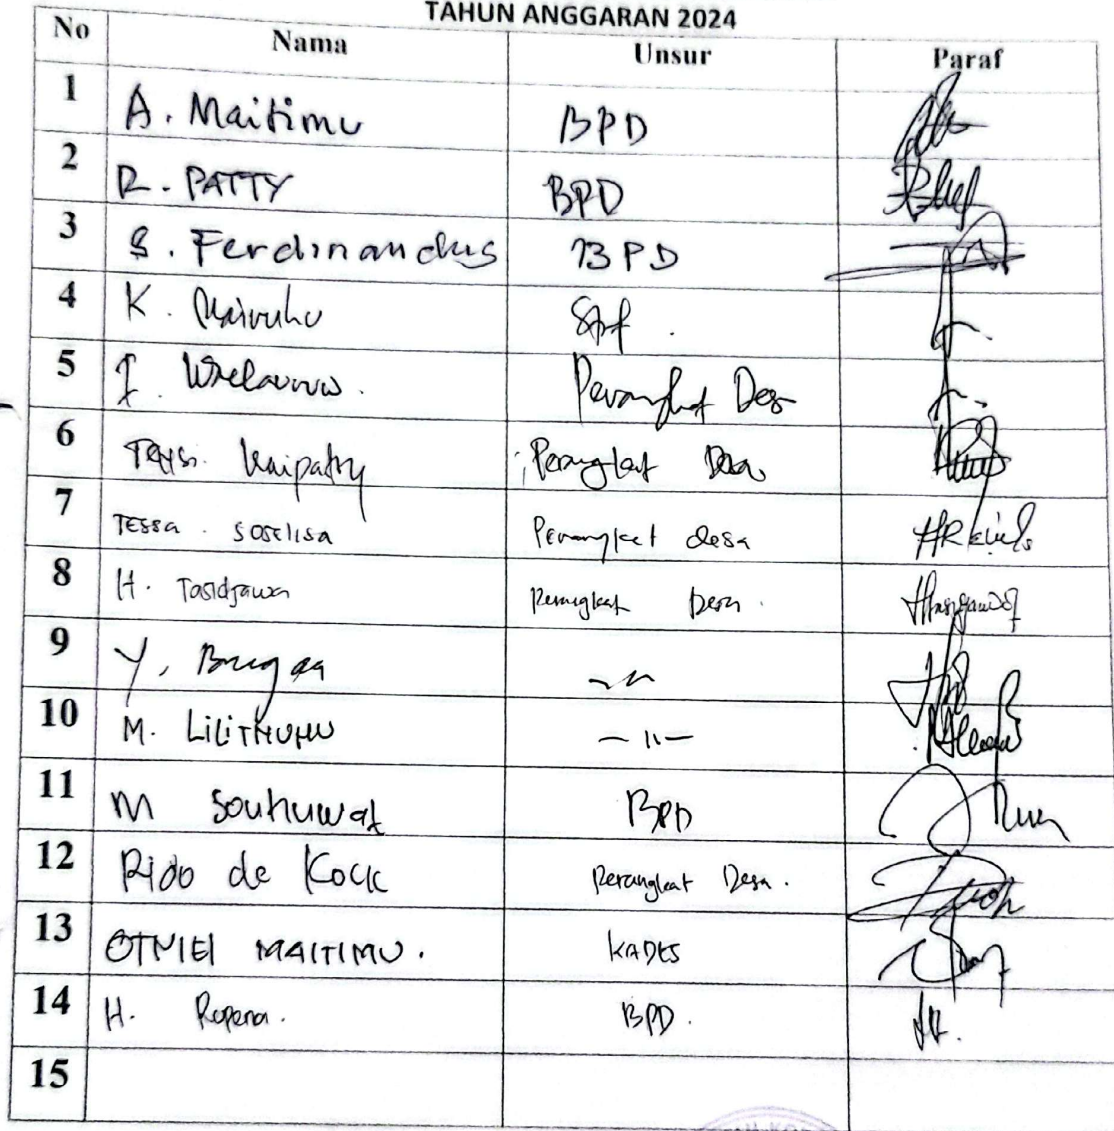 TAHUN ANGGARAN 2024
No Nama Unsur Paraf
1 A. Maitimu BPD
2 R. PATTY BPD
3 S. Ferdinandus BPD
4 K. Staf.
5 Perangkat Desa
6 Kaipatty Perangkat Desa
7 TESSA. SOSELISA Perangkat desa
8 H. Tasidjawa Perangkat Desa.
9 Y.
10 M. LILITNUHU — 11 —
11 M Souhuwat BPD
12 Rido de Kock Perangkat Desa.
13 OTNIEl MAITIMU. KADES
14 H. Ropena. BPD.
15